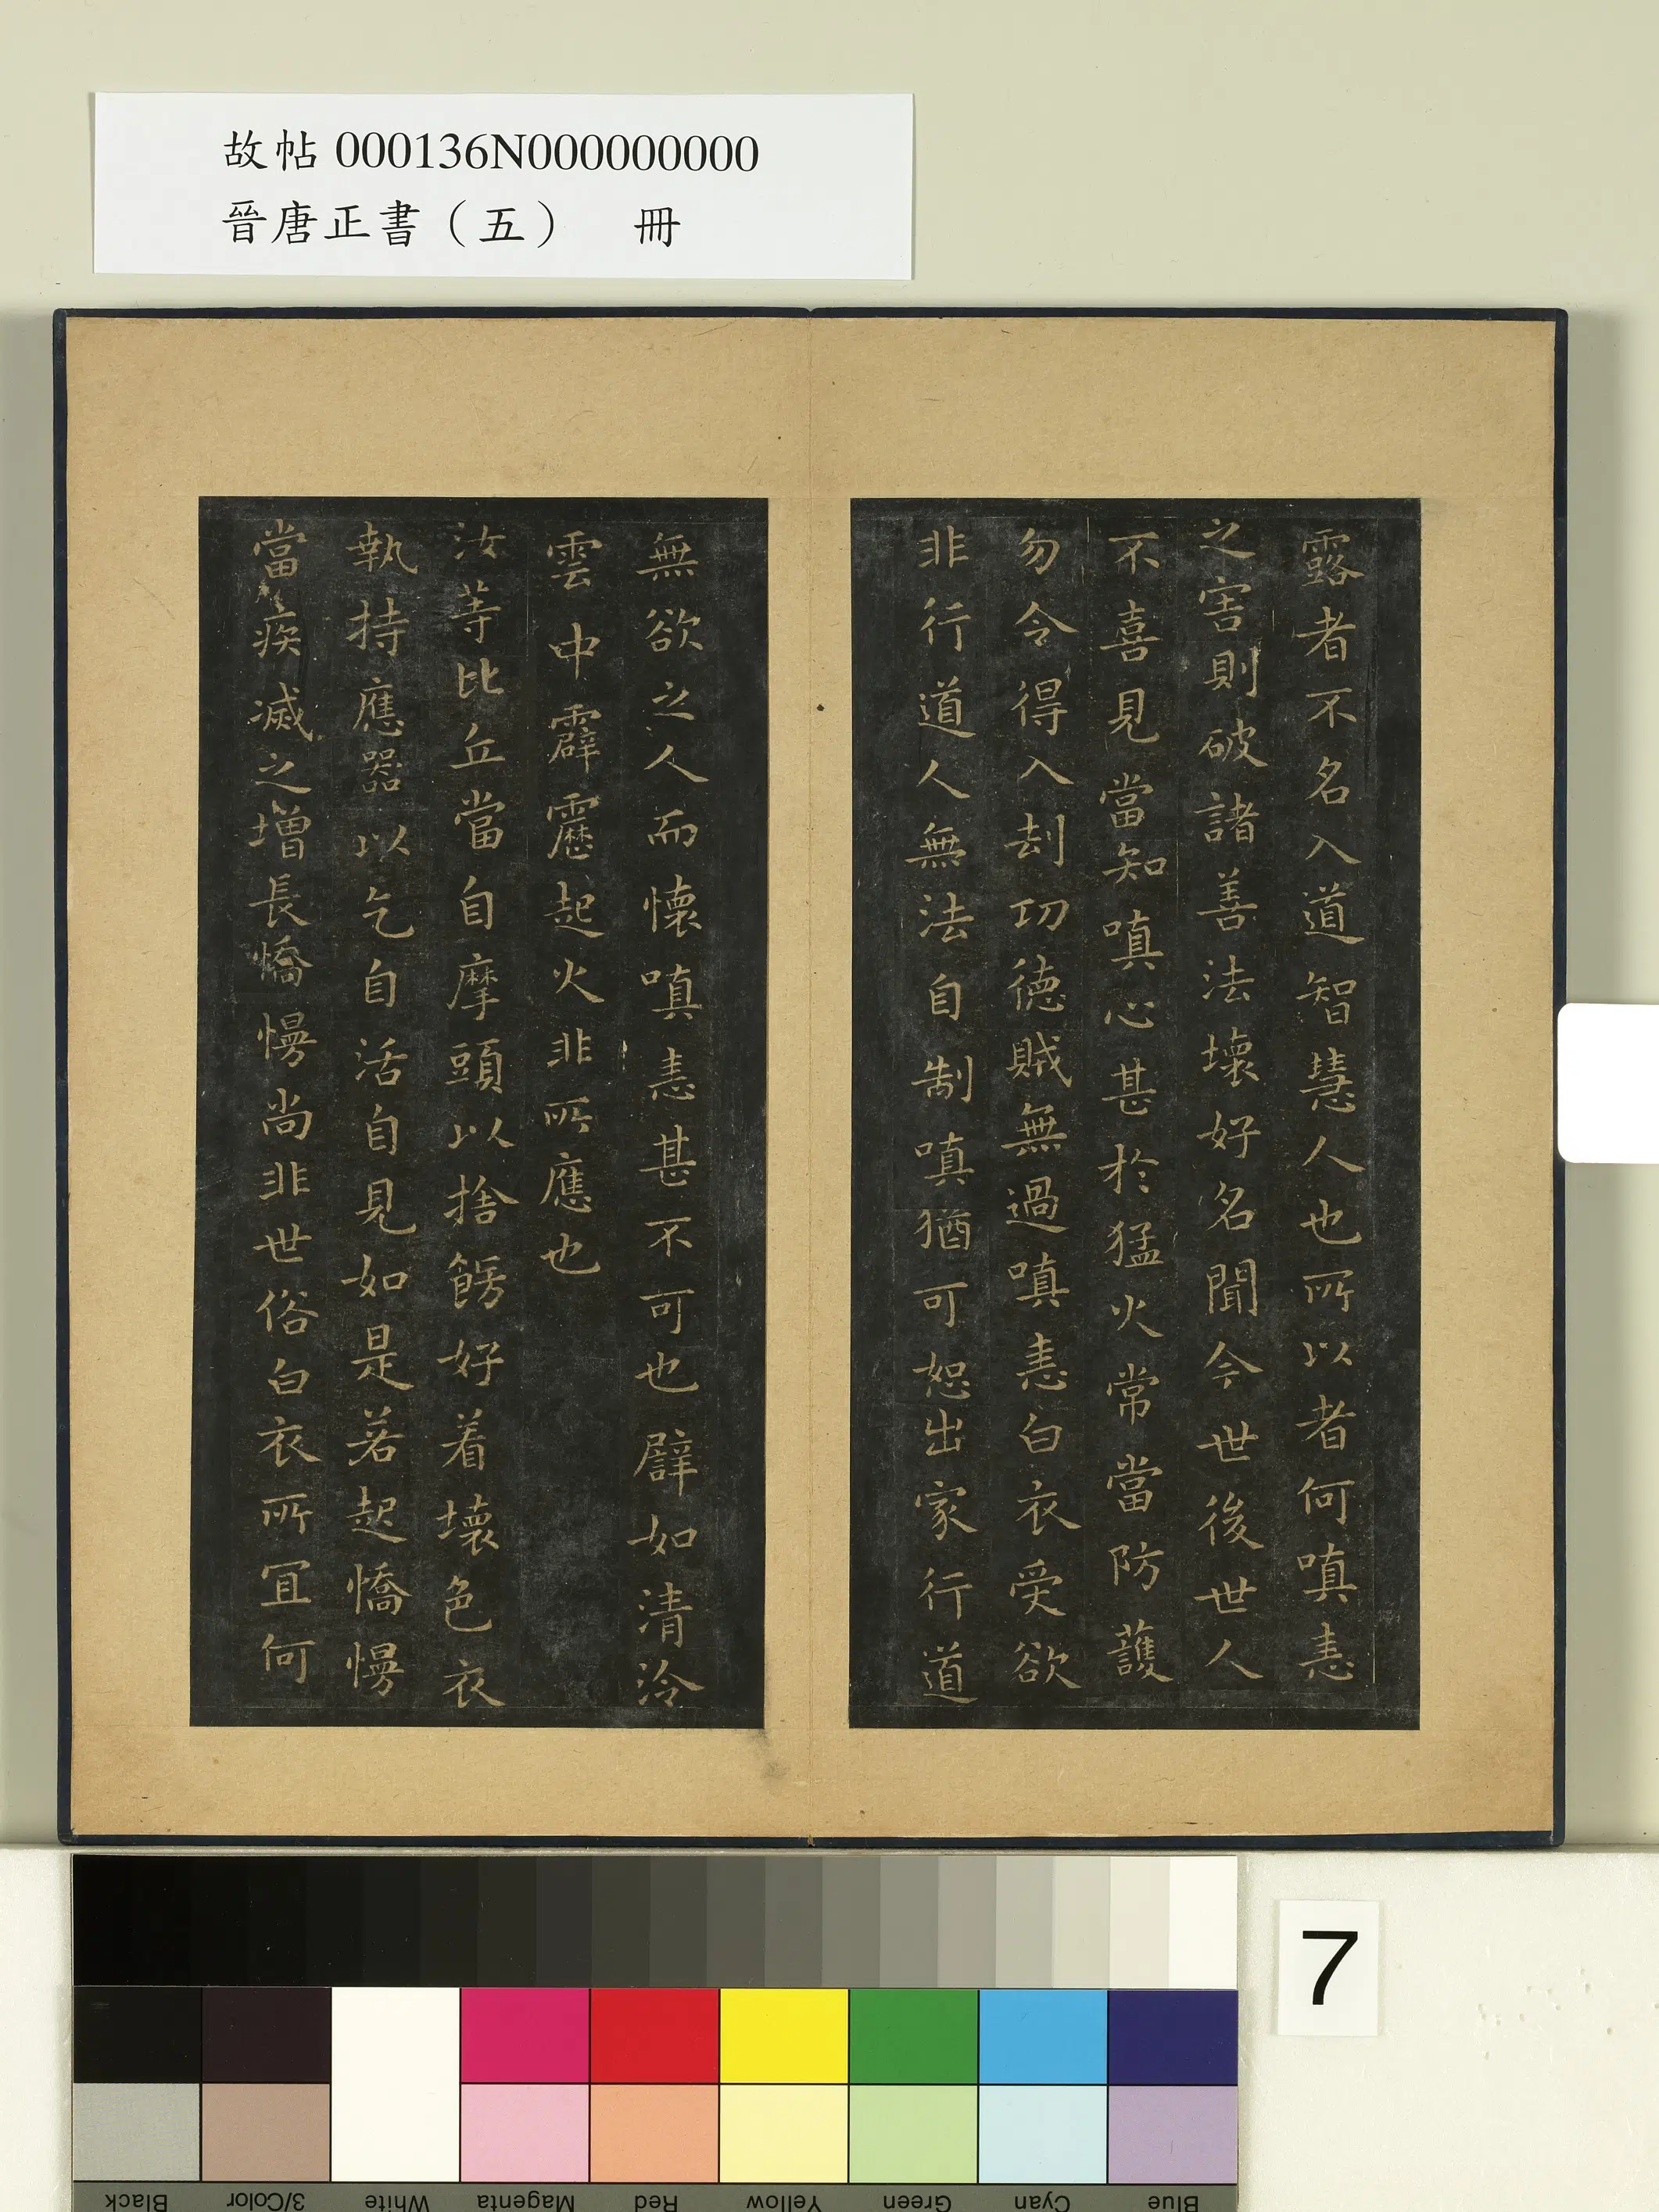 故帖 000136N000000000
晉唐正書（五）　冊
露者不名入道智慧人也所以者何嗔恚
之害則破諸善法壞好名聞今世後世人
不喜見當知嗔心甚於猛火常當防護
勿令得入刦功德賊無過嗔恚白衣受欲
非行道人無法自制嗔猶可恕出家行道
無欲之人而懷嗔恚甚不可也譬如清泠
雲中霹靂起火非所應也
汝等比丘當自摩頭以捨餝好着壞色衣
執持應器以乞自活自見如是若起憍慢
當疾滅之增長憍慢尚非世俗白衣所冝何
7
Black
3/Color
White
Magenta
Red
Yellow
Green
Cyan
Blue